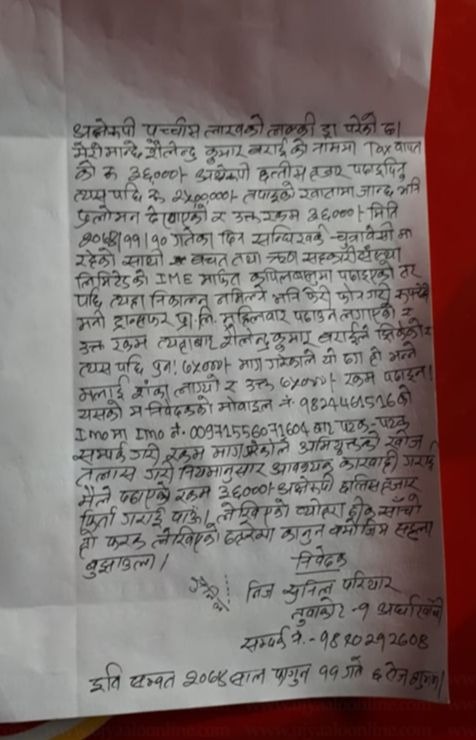 अक्षेरुपी पच्चीस लाखको लक्की ड्रा परेको छ।
मेरो मान्छे शैलेन्द्र कुमार बराई को नाममा Tax वापत
को रु ३६,०००।- अक्षेरुपी छत्तीस हजार पठाइदिनु
त्यस पछि रु २५००,०००।- तपाइको खातामा जान्छ भनि
प्रलोभन र उक्त रकम ३६,०००।- मिति
२०७५।११।१० गतेका दिन सन्धिखर्क
रहेको साथी बचत तथा ऋण सहकारी संस्था
लिमिटेडको IME मार्फत कपिलवस्तुमा पठाइएको तर
पछि त्यहा निकाल्न नमिल्ने भनि फेरी फोन गरी
मनी ट्रान्सफर प्रा.लि. पठाउन लगाएको र
उक्त रकम त्यहाबाट शैलेन्द्र कुमार बराईले झिकेको र
त्यस पछि पुनः ७५०००।- माग गरेकाले यो ठग हो भन्ने
मलाई शंका लाग्यो र उक्त ७५०००।- रकम पठाइन।
यसको म निवेदकको मोबाइल नं. 9824461516 को
Imo मा Imo नं. 00971556071604 बाट पटक-पटक
सम्पर्क गरी रकम माग गरेकोले अभियुक्तको खोज
तलास गरी नियमानुसार आवश्यक कारवाही गराई
मैले पठाएको रकम ३६०००।- अक्षेरुपी छत्तिस हजार
फिर्ता गराई पाऊँ। लेखिएको व्यहोरा ठीक साँचो
हो फरक लेखिएको ठहरेमा कानुन बमोजिम सहुँला
बुझाउला।
निवेदक
निज सुनिल परियार
नुवाकोट -१ अर्घाखाँची
सम्पर्क नं.- 9820292608
इति सम्वत २०७५ साल फागुन ११ गते ६ रोज शुभम।